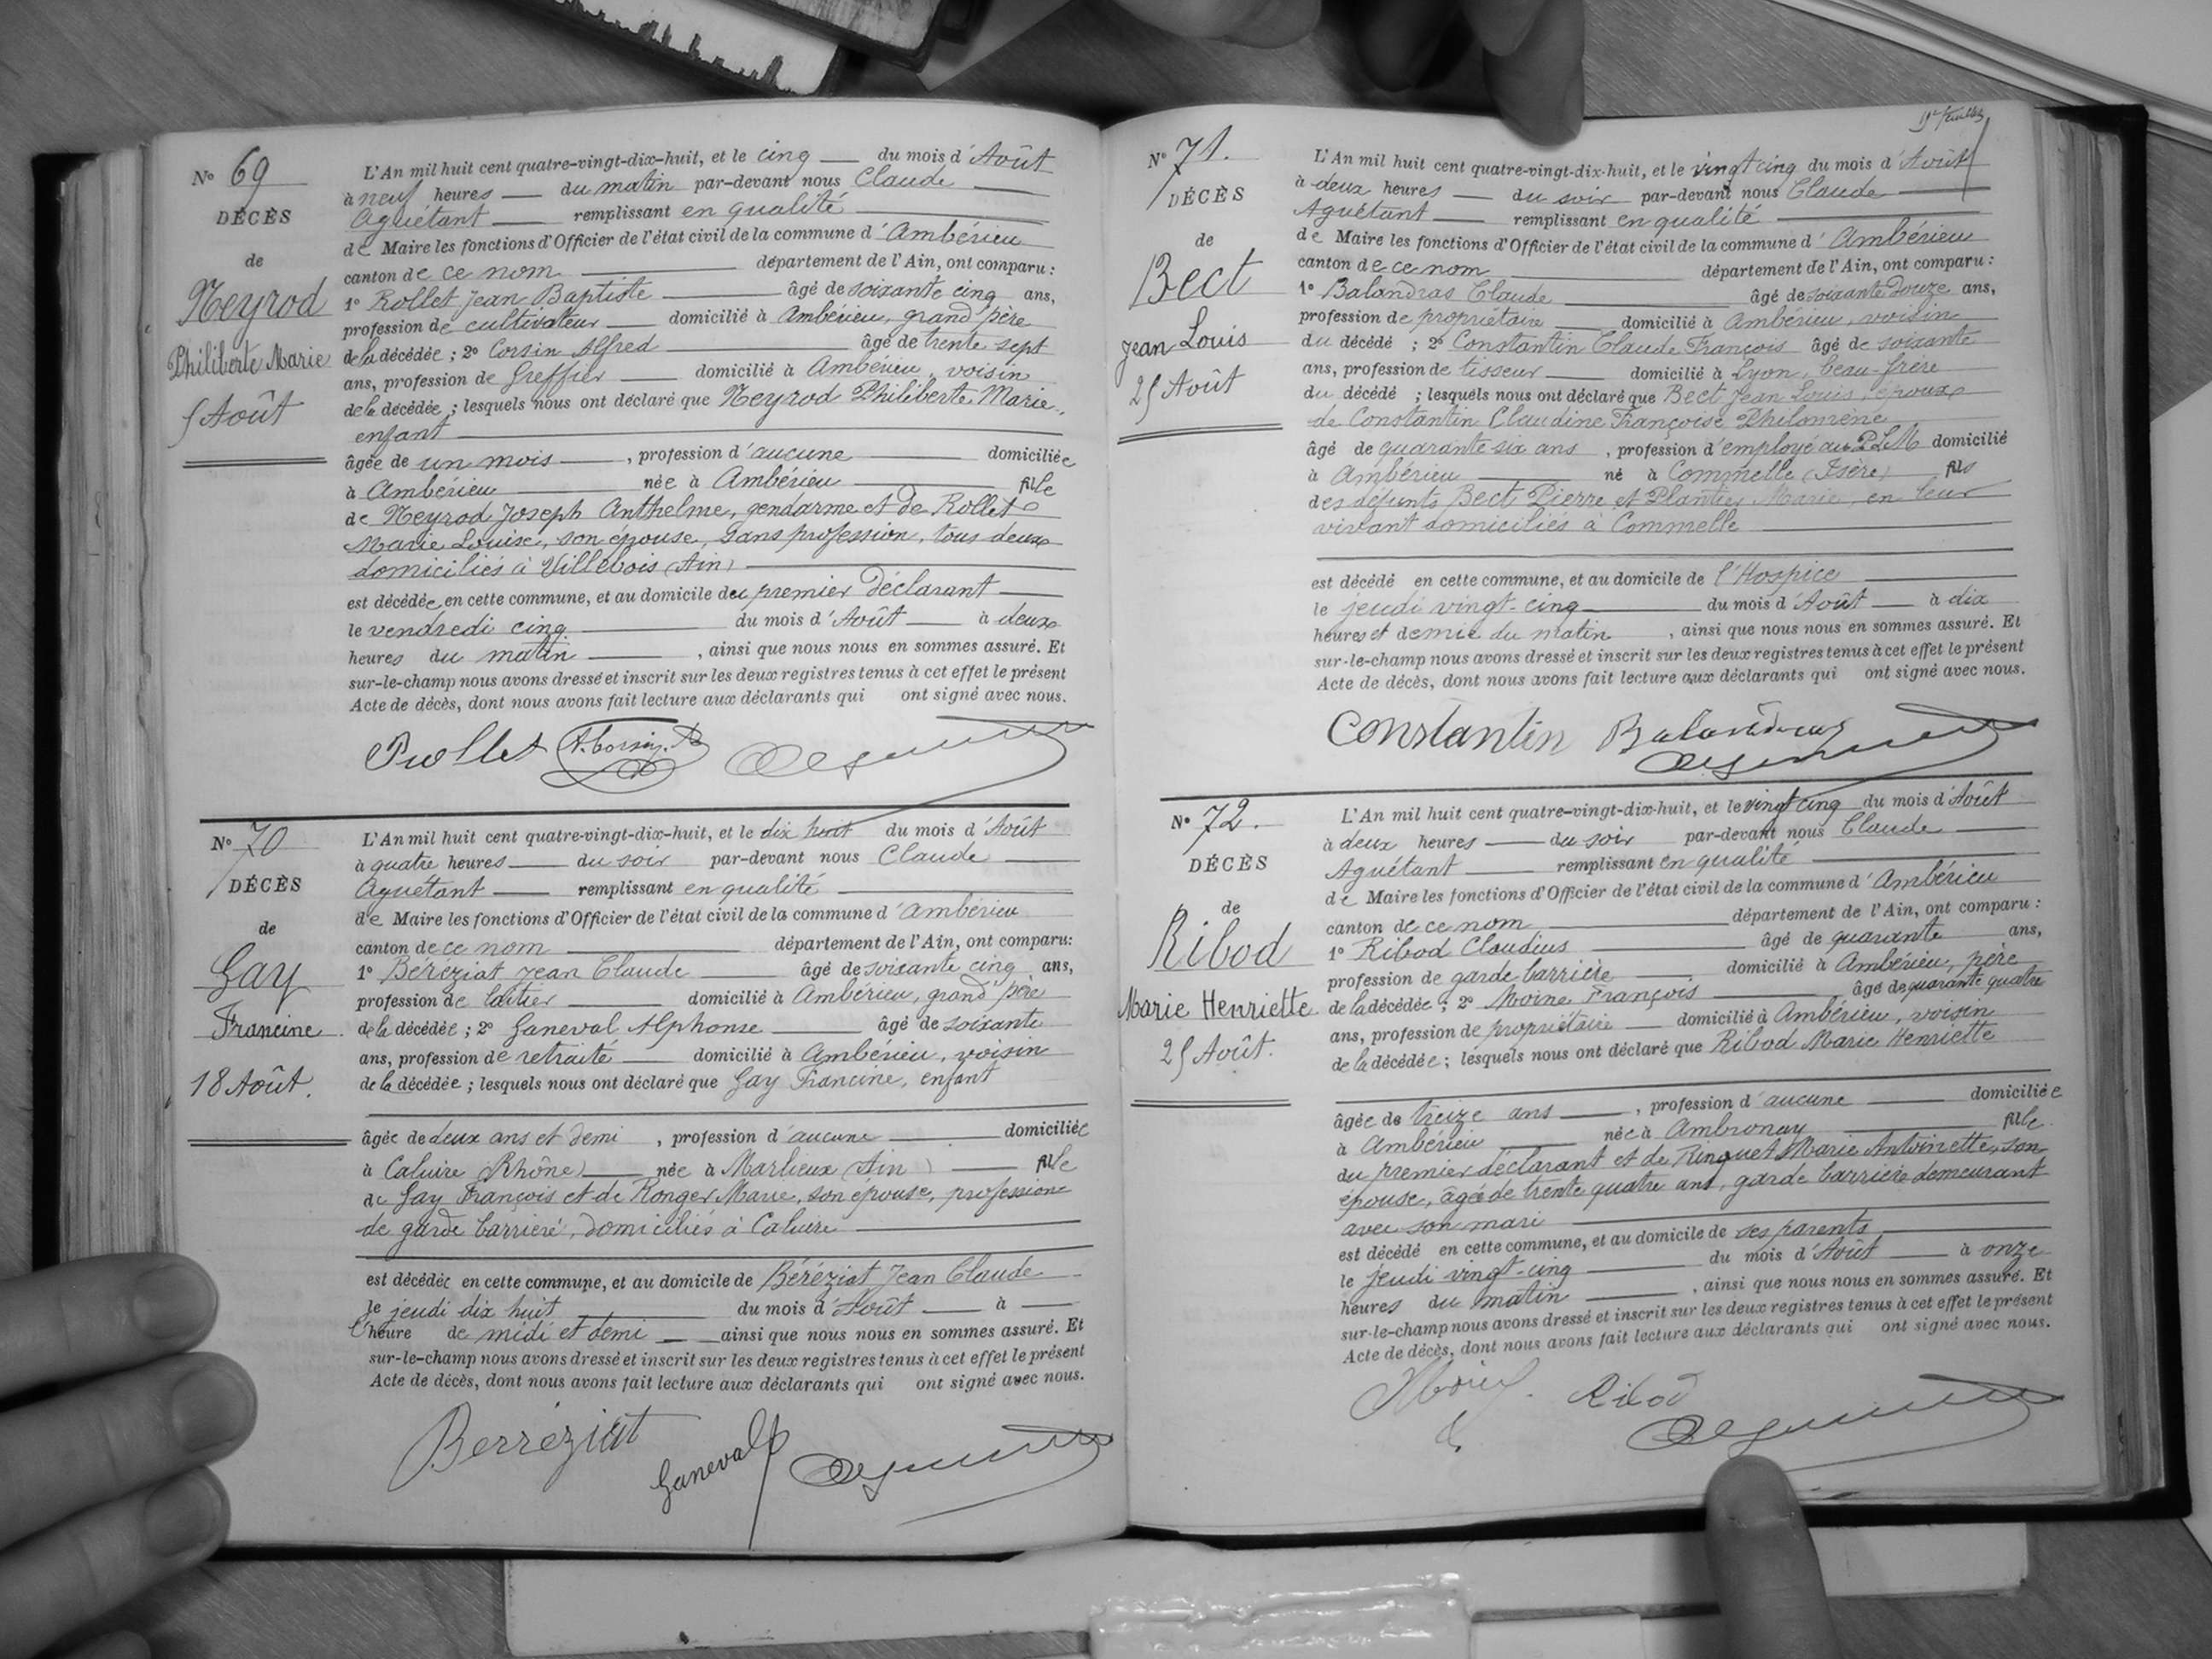 N° 69
DÉCÈS
de
Neyrod
Philiberte Marie
5 Août
L'An mil huit cent quatre-vingt-dix-huit, et le cinq du mois d'Août
à neuf heures du matin par-devant nous Claude
Aguétant remplissant en qualité
de Maire les fonctions d'Officier de l'état civil de la commune d'Ambérieu
canton de ce nom département de l'Ain, ont comparu :
1° Rollet Jean Baptiste âgé de soixante cinq ans,
profession de cultivateur domicilié à Ambérieu, grand père
de la décédée ; 2° Corsin Alfred âgé de trente sept
ans, profession de Greffier domicilié à Ambérieu, voisin
de la décédée ; lesquels nous ont déclaré que Neyrod Philiberte Marie,
enfant
âgée de un mois , profession d'aucune domiciliée
à Ambérieu née à Ambérieu fille
de Neyrod Joseph Anthelme, gendarme et de Rollet
Marie Louise, son épouse, sans profession, tous deux
domiciliés à Villebois (Ain)
est décédée en cette commune, et au domicile du premier déclarant
le vendredi cinq du mois d'Août à deux
heures du matin , ainsi que nous nous en sommes assuré. Et
sur-le-champ nous avons dressé et inscrit sur les deux registres tenus à cet effet le présent
Acte de décès, dont nous avons fait lecture aux déclarants qui ont signé avec nous.
Rollet A. Corsin
N° 70
DÉCÈS
de
Gay
Francine
18 Août.
L'An mil huit cent quatre-vingt-dix-huit, et le dix huit du mois d'Août
à quatre heures du soir par-devant nous Claude
Aguétant remplissant en qualité
de Maire les fonctions d'Officier de l'état civil de la commune d'Ambérieu
canton de ce nom département de l'Ain, ont comparu:
1° Béréziat Jean Claude âgé de soixante cinq ans,
profession de laitier domicilié à Ambérieu, grand père
de la décédée ; 2° Ganeval Alphonse âgé de soixante
ans, profession de retraité domicilié à Ambérieu, voisin
de la décédée ; lesquels nous ont déclaré que Gay Francine, enfant
âgée de deux ans et demi , profession d'aucune domiciliée
à Caluire (Rhône) née à Marlieux (Ain) fille
de Gay François et de Ronger Marie, son épouse, profession
de garde barrière, domiciliés à Caluire
est décédée en cette commune, et au domicile de Béréziat Jean Claude
le jeudi dix huit du mois d'Août à
l'heure de midi et demi ainsi que nous nous en sommes assuré. Et
sur-le-champ nous avons dressé et inscrit sur les deux registres tenus à cet effet le présent
Acte de décès, dont nous avons fait lecture aux déclarants qui ont signé avec nous.
Berréziat Ganeval
N° 71.
DÉCÈS
de
Bect
Jean Louis
25 Août
L'An mil huit cent quatre-vingt-dix-huit, et le vingt cinq du mois d'Août
à deux heures du soir par-devant nous Claude
Aguétant remplissant en qualité
de Maire les fonctions d'Officier de l'état civil de la commune d'Ambérieu
canton de ce nom département de l'Ain, ont comparu :
1° Balandras Claude âgé de soixante douze ans,
profession de propriétaire domicilié à Ambérieu, voisin
du décédé ; 2° Constantin Claude François âgé de soixante
ans, profession de tisseur domicilié à Lyon, beau-frère
du décédé ; lesquels nous ont déclaré que Bect Jean Louis, époux
de Constantin Claudine Françoise Philomène
âgé de quarante six ans , profession d'employé au P.L.M domicilié
à Ambérieu né à Commelle (Isère) fils
des défunts Bect Pierre et Plantier Marie, en leur
vivant domiciliés à Commelle
est décédé en cette commune, et au domicile de l'Hospice
le jeudi vingt-cinq du mois d'Août à dix
heures et demie du matin , ainsi que nous nous en sommes assuré. Et
sur-le-champ nous avons dressé et inscrit sur les deux registres tenus à cet effet le présent
Acte de décès, dont nous avons fait lecture aux déclarants qui ont signé avec nous.
Constantin Balandras
N° 72.
DÉCÈS
de
Ribod
Marie Henriette
25 Août.
L'An mil huit cent quatre-vingt-dix-huit, et le vingt cinq du mois d'Août
à deux heures du soir par-devant nous Claude
Aguétant remplissant en qualité
de Maire les fonctions d'Officier de l'état civil de la commune d'Ambérieu
canton de ce nom département de l'Ain, ont comparu :
1° Ribod Claudius âgé de quarante ans,
profession de garde barrière domicilié à Ambérieu, père
de la décédée ; 2° Moine François âgé de quarante quatre
ans, profession de propriétaire domicilié à Ambérieu, voisin
de la décédée ; lesquels nous ont déclaré que Ribod Marie Henriette
âgée de treize ans , profession d'aucune domiciliée
à Ambérieu née à Ambronay fille
du premier déclarant et de Ringuet Marie Antoinette, son
épouse, âgée de trente quatre ans, garde barrière demeurant
avec son mari
est décédé en cette commune, et au domicile de ses parents
le jeudi vingt-cinq du mois d'Août à onze
heures du matin , ainsi que nous nous en sommes assuré. Et
sur-le-champ nous avons dressé et inscrit sur les deux registres tenus à cet effet le présent
Acte de décès, dont nous avons fait lecture aux déclarants qui ont signé avec nous.
Ribod